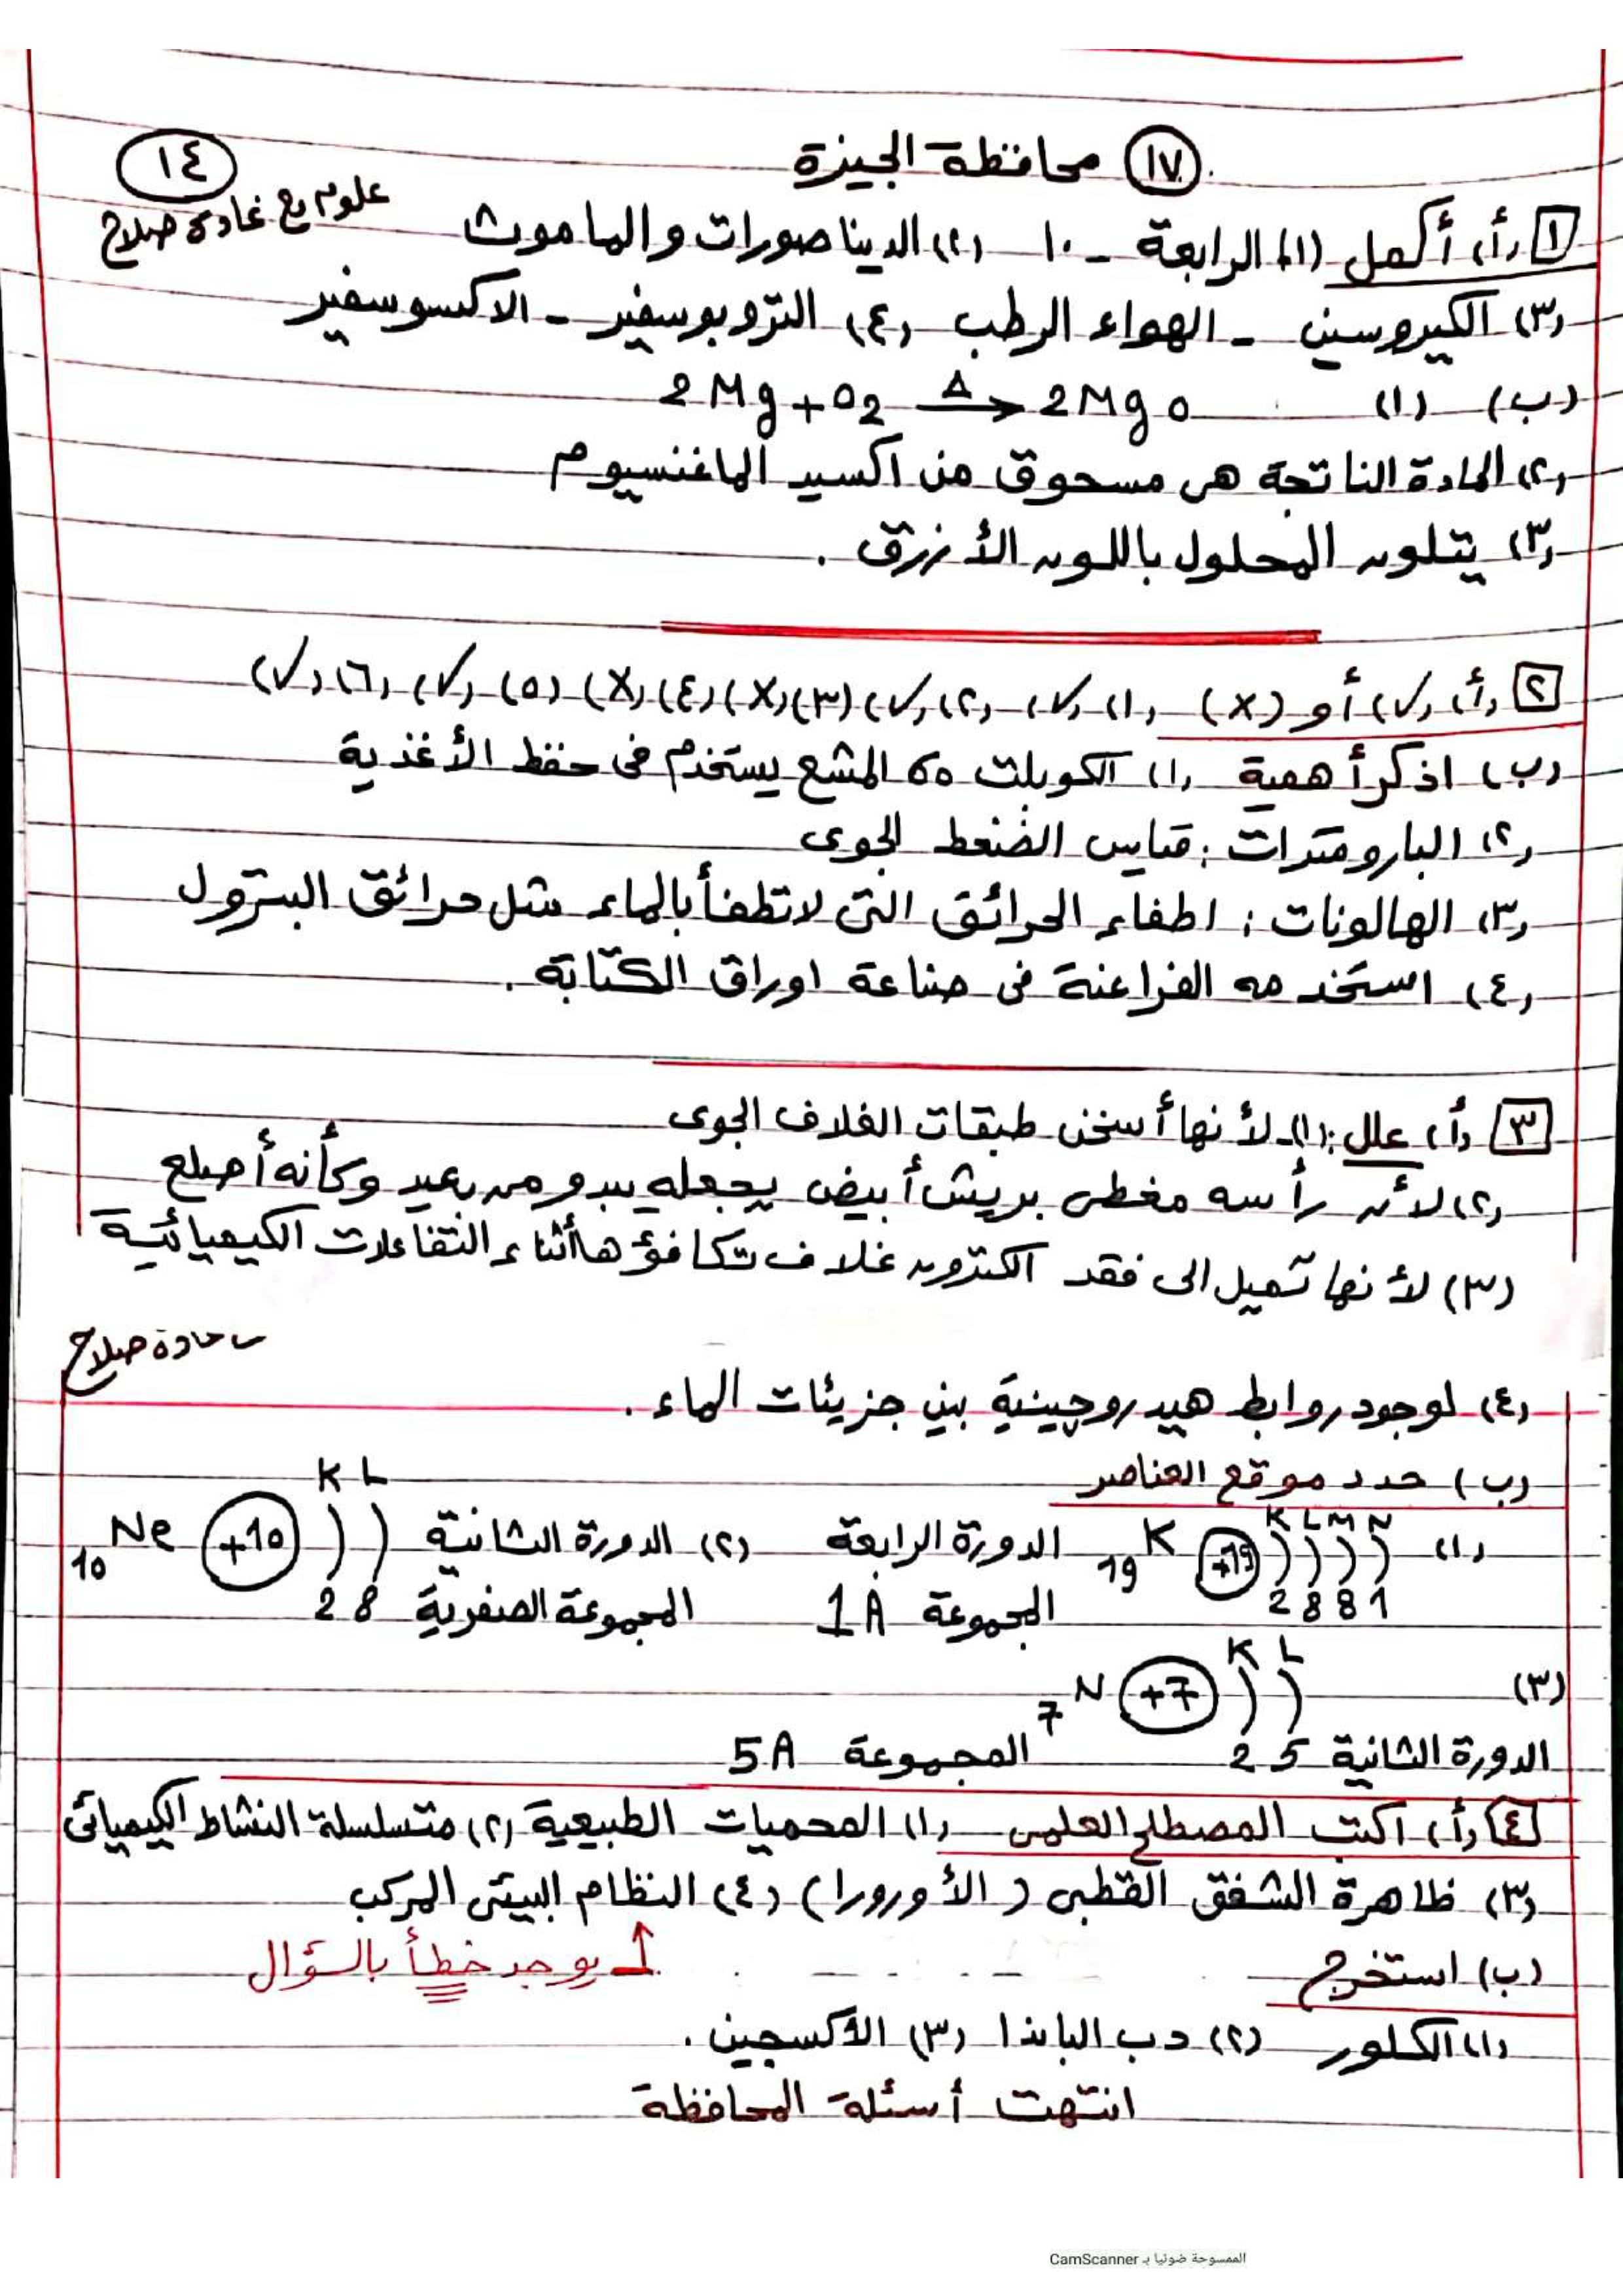 ١٧ محافظة الجيزة
١٤
علوم مع غادة صلاح
١ (أ) أكمل (١) الرابعة - ١٠ (٢) الديناصورات والماموث
(٣) الكيروسين - الهواء الرطب (٤) التروبوسفير - الاكسوسفير
(ب) (١) 2Mg + O2 —Δ→ 2MgO
(٢) المادة الناتجة هى مسحوق من اكسيد الماغنسيوم
(٣) يتلون المحلول باللون الأزرق .
٢ (أ) (✓) أو (X) (١) (✓) (٢) (✓) (٣) (X) (٤) (X) (٥) (✓) (٦) (✓)
(ب) اذكر أهمية (١) الكوبلت 60 المشع يستخدم فى حفظ الأغذية
(٢) البارومترات : قياس الضغط الجوى
(٣) الهالونات : اطفاء الحرائق التى لا تطفأ بالماء مثل حرائق البترول
(٤) استخدمه الفراعنة فى صناعة اوراق الكتابة .
٣ (أ) علل : (١) لأنها أسخن طبقات الغلاف الجوى
(٢) لأن رأسه مغطى بريش أبيض يجعله يبدو من بعيد وكأنه أصلع
(٣) لأنها تميل الى فقد الكترون غلاف تكافؤها أثناء التفاعلات الكيميائية
غادة صلاح
(٤) لوجود روابط هيدروجينية بين جزيئات الماء .
(ب) حدد موقع العناصر
(١) 19K +19 K L M N الدورة الرابعة (٢) الدورة الثانية K L +10 10Ne
2 8 8 1 المجموعة 1A المجموعة الصفرية 2 8
(٣) 7N +7 K L
الدورة الثانية 2 5 المجموعة 5A
٤ (أ) اكتب المصطلح العلمى (١) المحميات الطبيعية (٢) متسلسلة النشاط الكيميائى
(٣) ظاهرة الشفق القطبى ( الأورورا ) (٤) النظام البيئى المركب
(ب) استخرج يوجد خطأ بالسؤال
(١) الكلور (٢) دب الباندا (٣) الأكسجين .
انتهت أسئلة المحافظة
الممسوحة ضوئيا بـ CamScanner